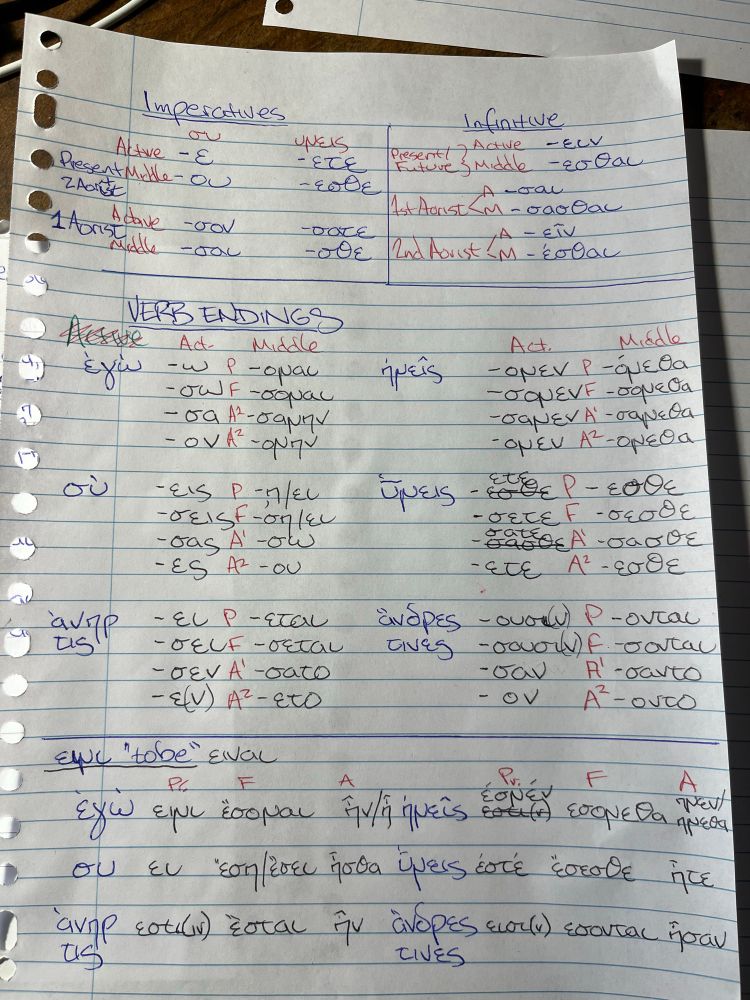 Imperatives
συ υμεις
Active -ε -ετε
Present + 2 Aorist Middle -ου -εσθε
1 Aorist Active -σον -σατε
Middle -σαι -σθε
Infinitive
Present/ Future } Active -ειν
Middle -εσθαι
1st Aorist < A -σαι
M -σασθαι
2nd Aorist < A -εῖν
M -έσθαι
VERB ENDINGS
Act. Middle Act. Middle
ἐγὼ -ω P -ομαι ἡμεῖς -ομεν P -όμεθα
-σω F -σομαι -σομεν F -σομεθα
-σα A² -σαμην -σαμεν A¹ -σαμεθα
-ον A² -ομην -ομεν A² -ομεθα
σὺ -εις P -ῃ/ει ὕμεις -ετε P -εσθε
-σεις F -σῃ/ει -σετε F -σεσθε
-σας A¹ -σω -σατε A¹ -σασθε
-ες A² -ου -ετε A² -εσθε
ἀνηρ τις -ει P -εται ἄνδρες τινες -ουσι(ν) P -ονται
-σει F -σεται -σουσι(ν) F -σονται
-σεν A¹ -σατο -σαν A¹ -σαντο
-ε(ν) A² -ετο -ον A² -οντο
ειμι "to be" ειναι
Pr. F A Pr. F A
ἐγὼ ειμι ἔσομαι ἦν/ἦ ἡμεῖς ἐσμέν εσομεθα ἦμεν/ ημεθα
συ ει ἔση/ἔσει ἦσθα ὕμεις ἐστέ ἔσεσθε ἦτε
ἀνηρ τις εστι(ν) ἔσται ἦν ἄνδρες τινες εισι(ν) εσονται ἦσαν